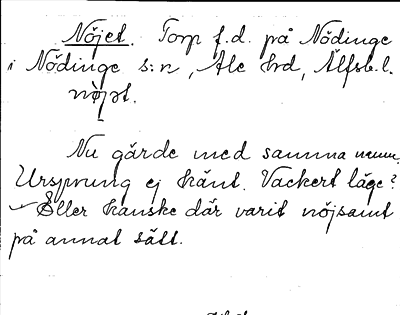 Nöjet. Torp f.d. på Nödinge
i Nödinge s:n, Ale hd, Älfsb. l.
nöjət.
Nu gärde med samma namn.
Ursprung ej känt. Vackert läge?
Eller kanske där varit nöjsamt
på annat sätt.